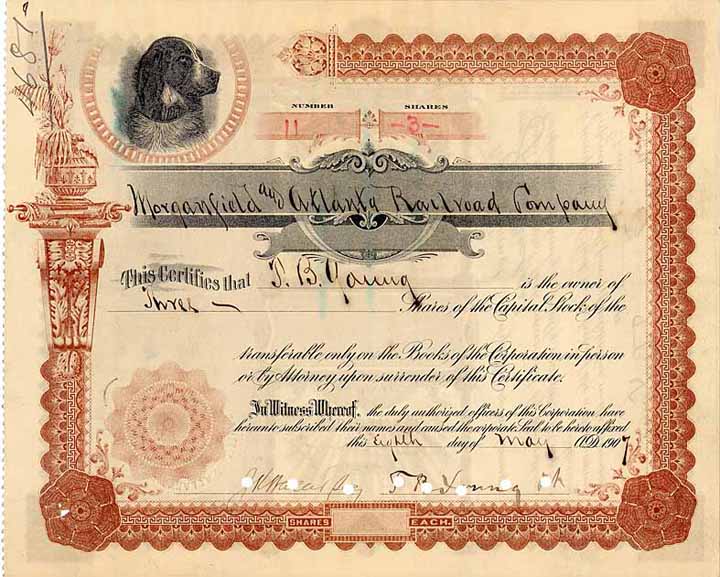 4687
NUMBER SHARES
11 -3-
Morganfield and Atlanta Railroad Company
This Certifies that T. B. Young is the owner of
Three — Shares of the Capital Stock of the
transferable only on the Books of the Corporation in person
or by Attorney upon surrender of this Certificate.
In Witness Whereof, the duly authorized officers of this Corporation have
hereunto subscribed their names and caused the corporate Seal to be hereto affixed
this Eighth day of May A.D. 1907
T. B. Young
SHARES EACH.